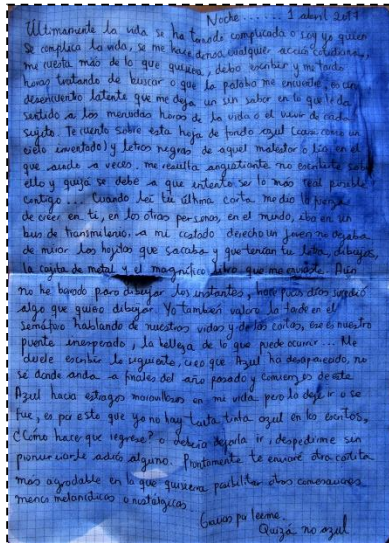 Noche...... 1 abril 2017
Últimamente la vida se ha tornado complicada o soy yo quien
se complica la vida, se me hace densa cualquier acción cotidiana,
me cuesta más de lo que quisiera, debo escribir y me tardo
horas tratando de buscar o que la palabra me encuentre, es un
desencuentro latente que me deja un sin sabor en lo que le da
sentido a las menudas horas de la vida o el vivir de cada
sujeto. Te cuento sobre esta hoja de fondo azul (casi como un
cielo inventado) y letras negras de aquel malestar o lío, en el
que ando a veces, me resulta angustiante no escribirte sobre
ello y quizá se debe a que intento ser lo más real posible
contigo... Cuando leí tu última carta me dio la
de creer en ti, en las otras personas, en el mundo, iba en un
bus de transmilenio, a mi costado derecho un joven no dejaba
de mirar las hojitas que sacaba y que tenían tu letra, dibujos,
la cajita de metal y el magnífico libro que me enviaste. Aún
no he parado para dibujar los instantes, hace pocos días sucedió
algo que quiero dibujar. Yo también valoro la tarde en el
semáforo hablando de nuestras vidas y de las cartas, ese es nuestro
puente inesperado, la belleza de lo que puede ocurrir... Me
duele escribir lo siguiente, creo que Azul ha desaparecido, no
se donde anda a finales del año pasado y comienzos de este
Azul hacía estragos maravillosos en mi vida pero la dejé ir o se
fue, es por esto que ya no hay tanta tinta azul en los escritos,
¿Cómo hacer que regrese? o debería dejarla ir, despedirme sin
pronunciarle adiós alguno. Prontamente te enviaré otra cartita
más agradable en la que quisiera posibilitar otras conversaciones
menos melancólicas o nostálgicas.
Gracias por leerme.
Quizá no azul